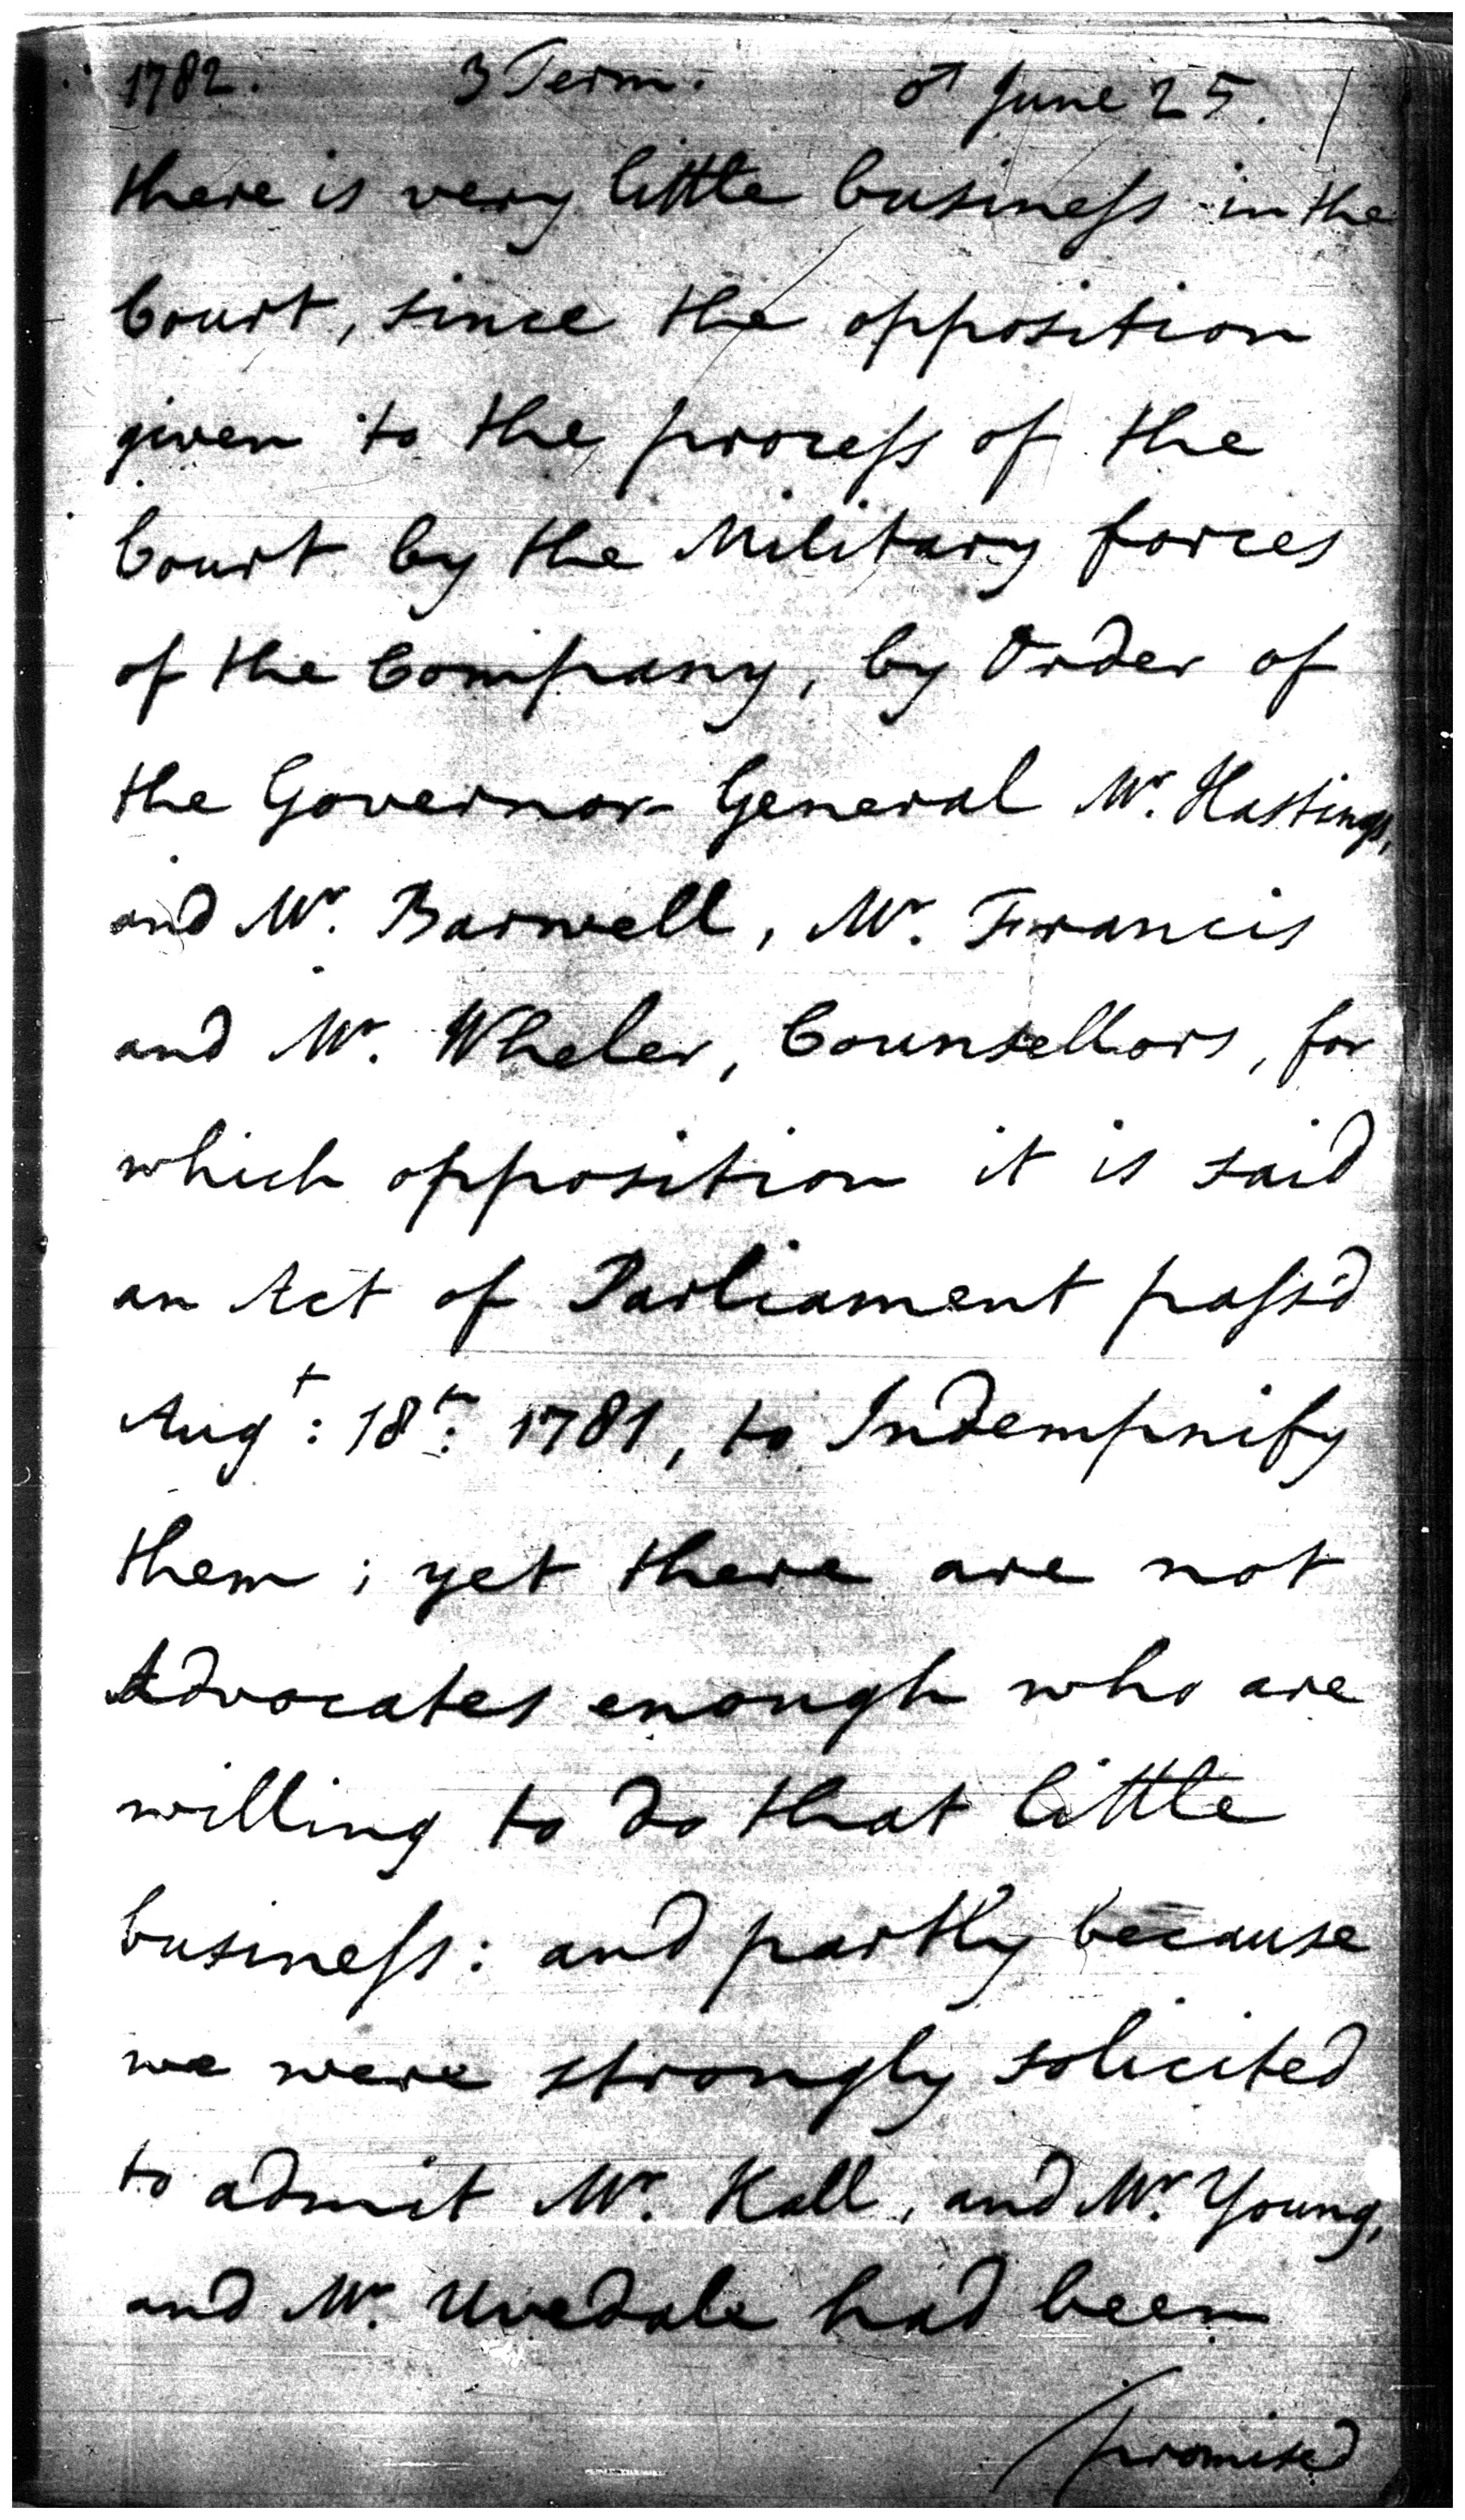 1782. 3 Term. ♂ June 25.
there is very little business in the
Court, since the opposition
given to the process of the
Court by the Military forces
of the Company, by Order of
the Governor General Mr. Hastings,
and Mr. Barwell, Mr. Francis
and Mr. Wheler, Counsellors, for
which opposition it is said
an Act of Parliament pass'd
Augt: 18th: 1781, to Indempnify
them; yet there are not
Advocates enough who are
willing to do that little
business: and partly because
we were strongly solicited
to admit Mr. Hall, and Mr. Young,
and Mr. Uvedale had been
promised